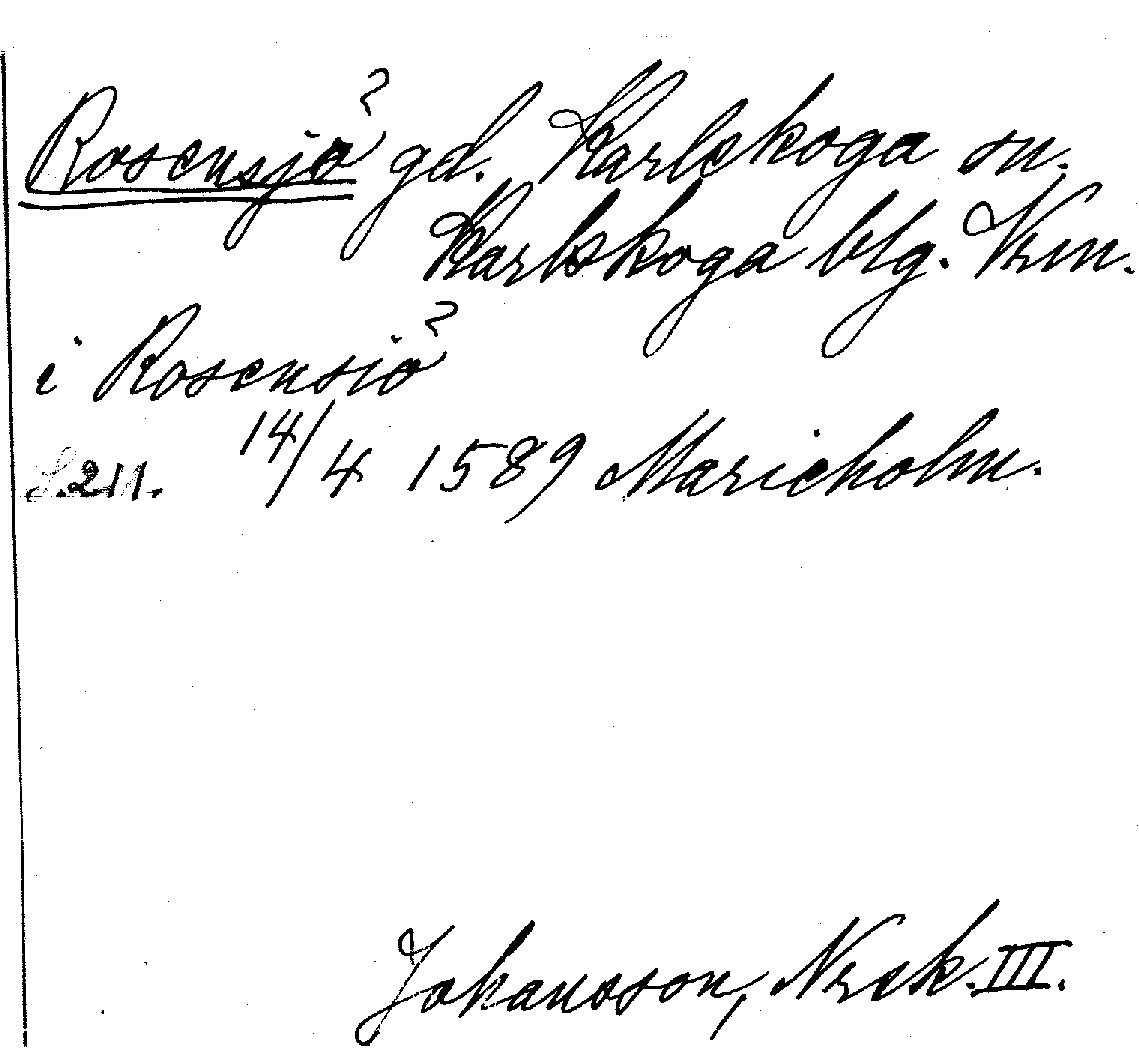 Rosensjö? gd. Karlskoga sn.
Karlskoga blg. Vrm.
i Rosensiö?
S. 211. 14/4 1589 Marieholm.
Johansson, Nrck. III.